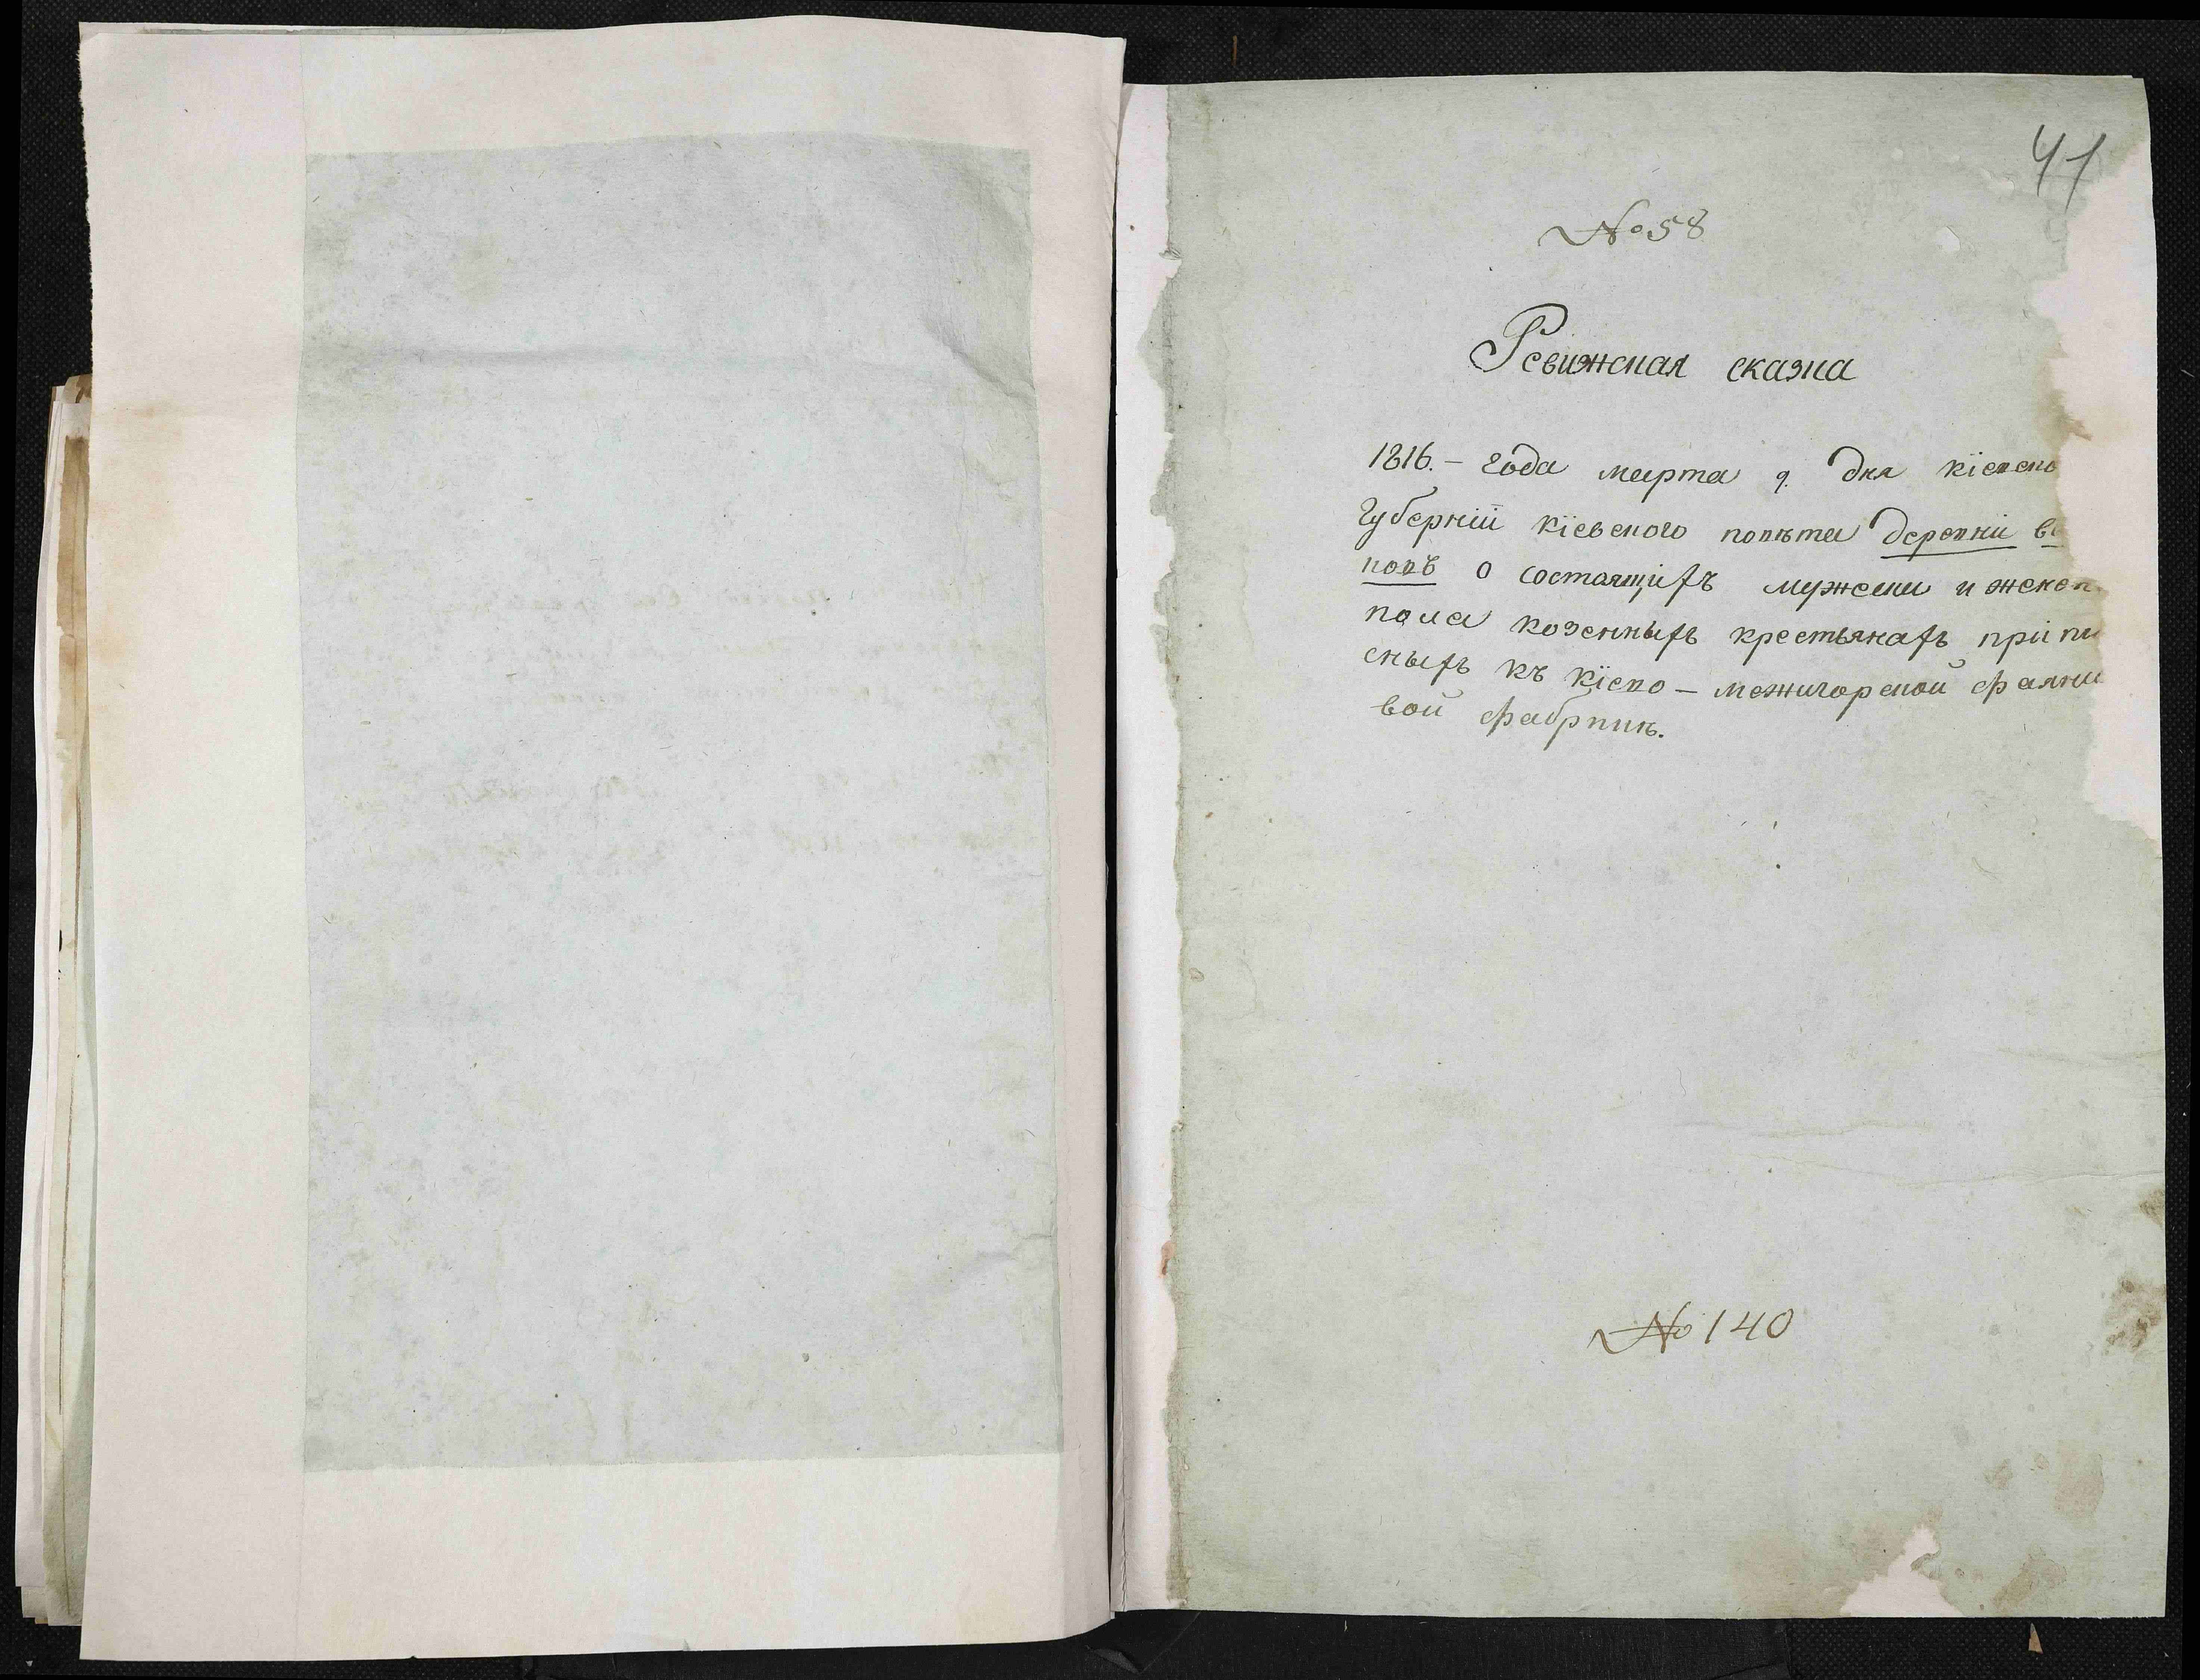 41
№ 58
Ревижская сказка
1816.- года марта 9. дня кіевско
Губерніи кіевского повѣта деревни ве
ковъ о состаящихъ мужеска и женск
пола козенныхъ крестьянахъ припи
сныхъ къ кіево - межигорской фаянц
вой фабрики.
№ 140